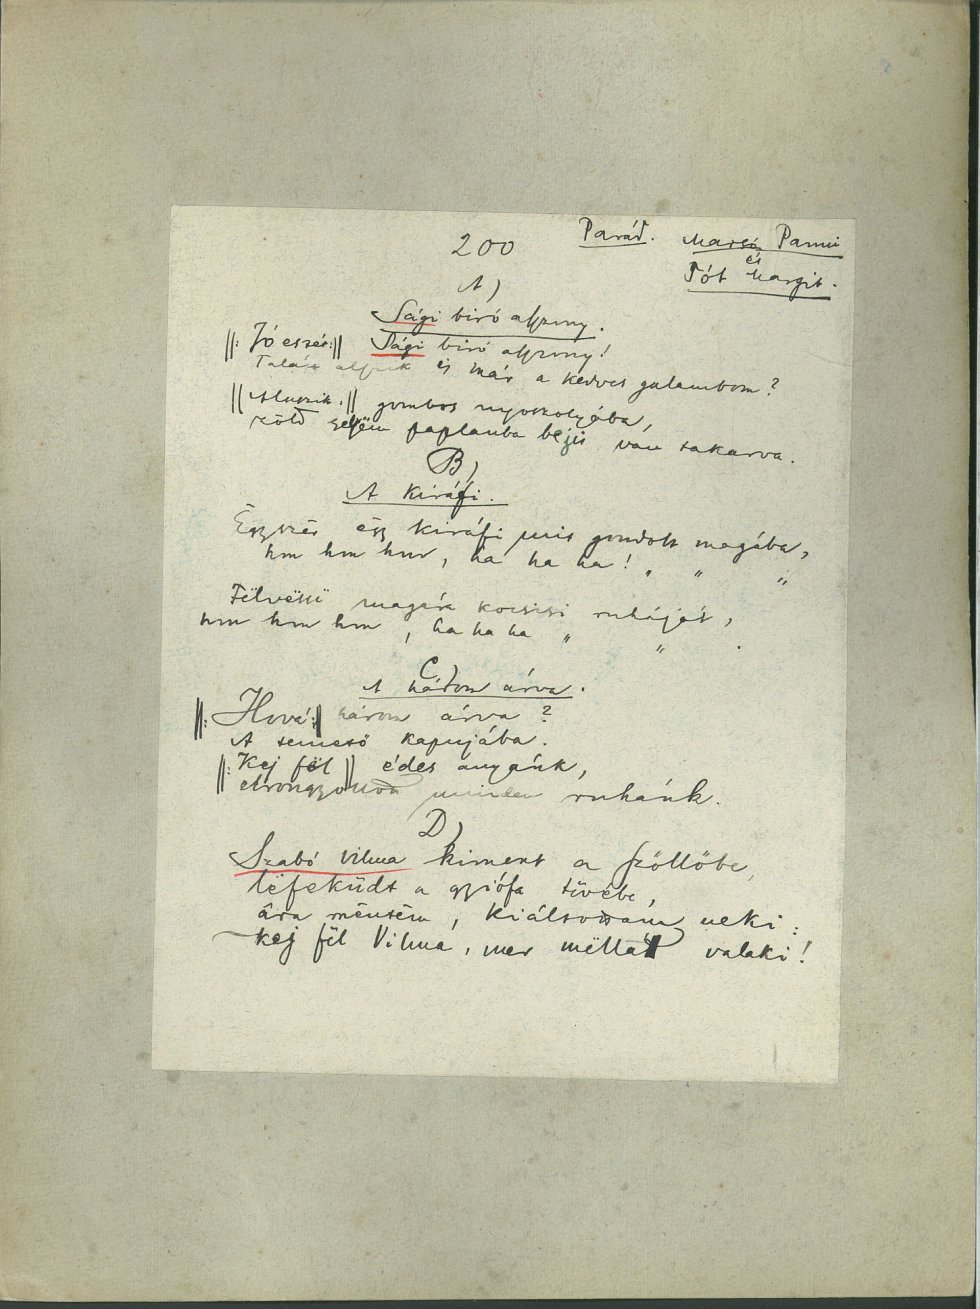 200
Parád. Marsó Panni
és
Tót Margit.
A)
Sági biró asszony.
||: Jó eszés :|| Sági biró asszony!
Talán alszik is már a kedves galambom?
|| Aluszik :|| gombos nyoszolyába,
zöld seljëm paplanba bejis van takarva.
B)
A kiráfi.
Ëgyszës ëgy kiráfi mis gondolt magába,
hm hm hm, ha ha ha! „ „ „
Fëlvëszi magára kocsisi ruháját,
hm hm hm, ha ha ha „ „ .
C)
A három árva.
||: Hová :|| három árva?
A temető kapujába.
||: Kej föl || édes anyánk,
elrongyollott minden ruhánk.
D)
Szabó Vilma kiment a szőllőbe,
lëfeküdt a gyiófa tövébe,
ára mëntëm, kiáltottam neki:
kej fël Vilma, mer mëllát valaki!